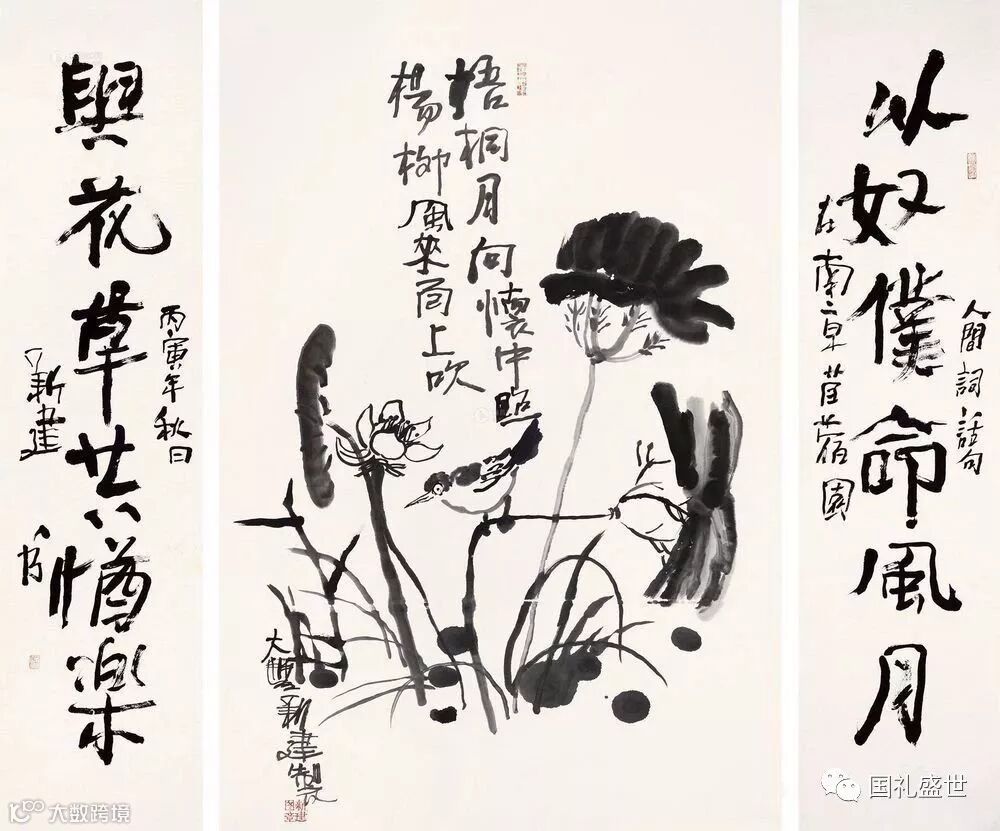 以奴僕命風月
人間詞話句
在南京苜蓿園
梧桐月向懷中照
楊柳風來面上吹
大豐新建製
與花草共樂
丙寅年秋日
新建
大数跨境
国礼盛世